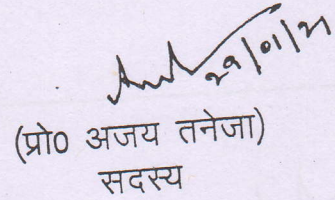 29/01/21
(प्रो0 अजय तनेजा)
सदस्य